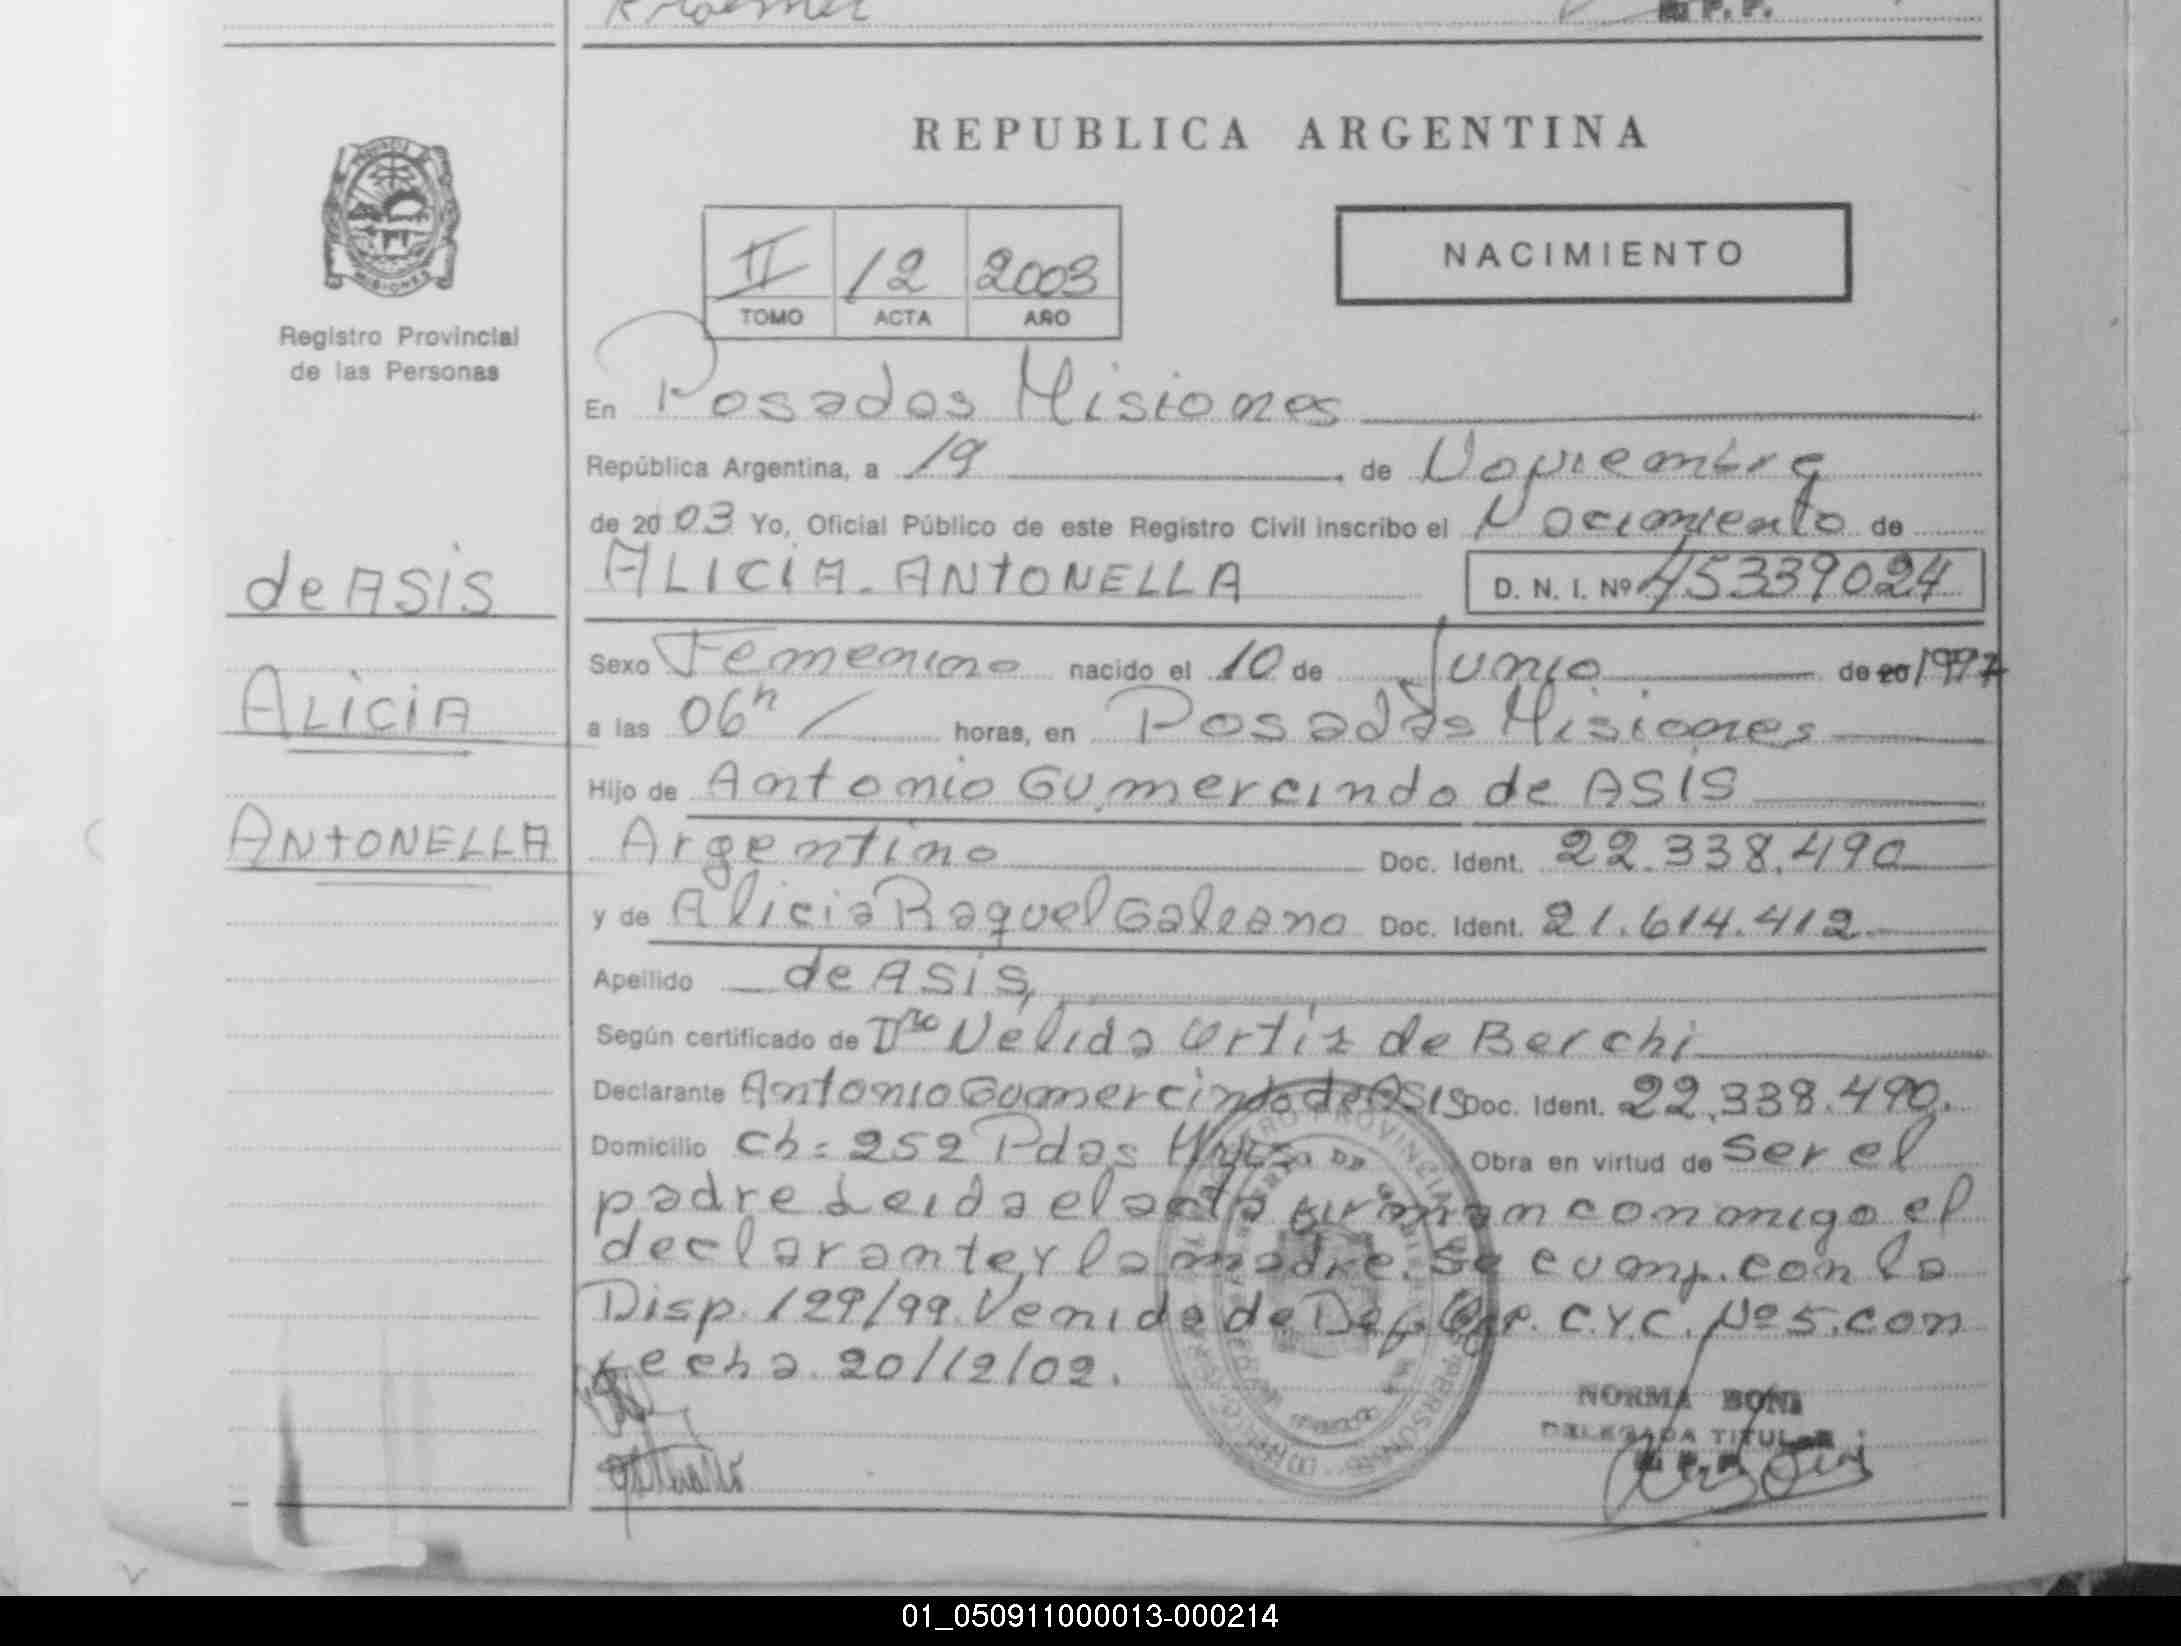 REPUBLICA ARGENTINA
PROVINCIA DE
MISIONES
Registro Provincial
de las Personas
II 12 2003
TOMO ACTA AÑO
NACIMIENTO
En Posadas Misiones
República Argentina, a 19 de Noviembre
de 2003 Yo, Oficial Público de este Registro Civil inscribo el Nacimiento de
de ASIS
ALICIA. ANTONELLA D. N. I. Nº 45339024
Sexo Femenino nacido el 10 de Junio de 20 1997
ALICIA
a las 06h horas, en Posadas Misiones
Hijo de Antonio Gumercindo de ASIS
ANTONELLA
Argentino Doc. Ident. 22.338.490
y de Alicia Raquel Galeano Doc. Ident. 21.614.412
Apellido de ASIS,
Según certificado de Nelida Ortiz de Berchi
Declarante Antonio Gumercindo de ASIS Doc. Ident. 22.338.490.
Domicilio Ch: 252 Pdas Obra en virtud de ser el
padre Leida el acta firman conmigo el
declarante y la madre. Se cump. con la
Disp. 129/99. Venida de C.Y.C. Nº 5. con
fecha 20/12/02.
NORMA BONI
DELEGADA TITULAR
R. P. P.
01_050911000013-000214